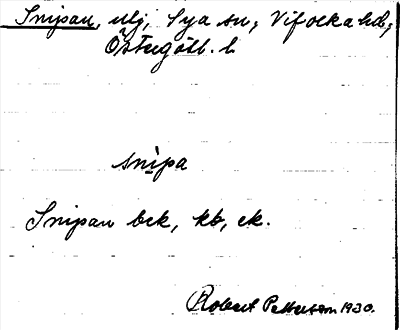 Snipan, ulj, Sya sn, Vifolka hd,
Östergötl. l.
snipa
Snipan bck, kb, ek.
Robert Pettersson 1930.